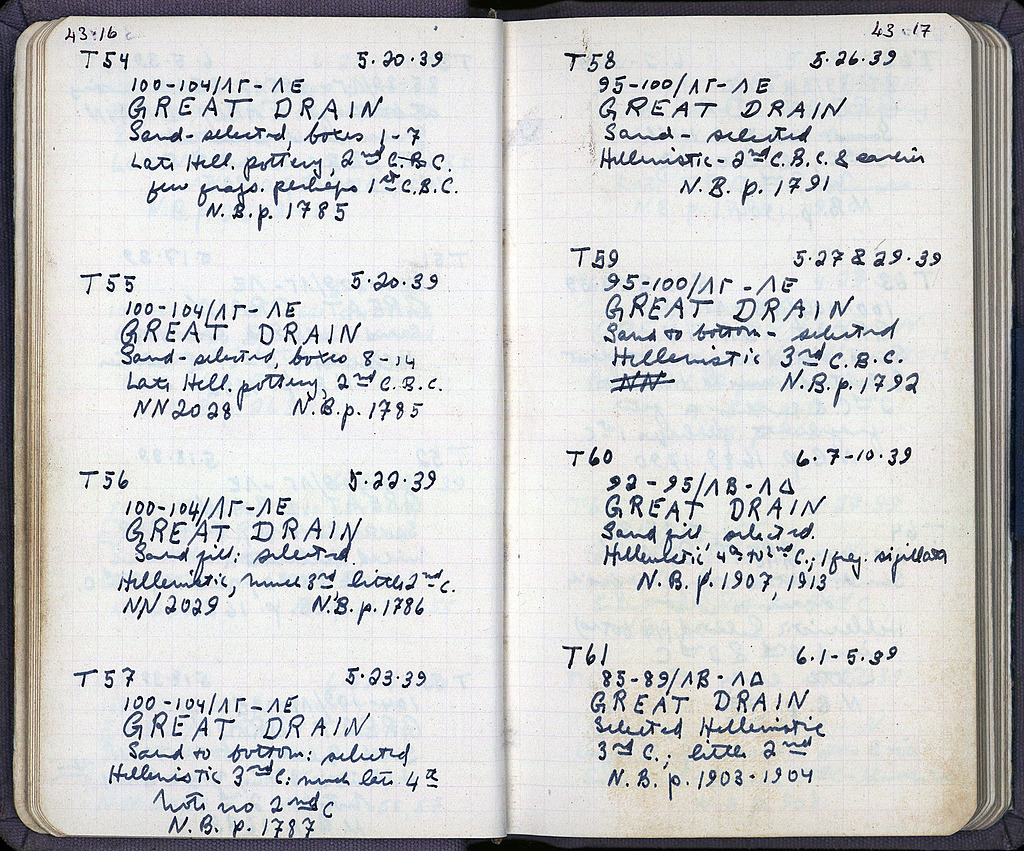 43·16
T 54 5·20·39
100-104/ΛΓ-ΛΕ
GREAT DRAIN
Sand-selected, boxes 1-7
Late Hell. pottery, 2nd C.B.C.
few frags. perhaps 1st C.B.C.
N.B. p. 1785
T 55 5·20·39
100-104/ΛΓ-ΛΕ
GREAT DRAIN
Sand-selected, boxes 8-14
Late Hell. pottery, 2nd C.B.C.
NN 2028 N.B. p. 1785
T 56 5·22·39
100-104/ΛΓ-ΛΕ
GREAT DRAIN
Sand fill: selected
Hellenistic, much 3rd, little 2nd C.
NN 2029 N.B. p. 1786
T 57 5·23·39
100-104/ΛΓ-ΛΕ
GREAT DRAIN
Sand to bottom: selected
Hellenistic 3rd C: much late 4th
Note no 2nd C
N.B. p. 1787
43·17
T 58 5·26·39
95-100/ΛΓ-ΛΕ
GREAT DRAIN
Sand-selected
Hellenistic-2nd C.B.C. & earlier
N.B. p. 1791
T 59 5·27 & 29·39
95-100/ΛΓ-ΛΕ
GREAT DRAIN
Sand to bottom-selected
Hellenistic 3rd C.B.C.
NN N.B. p. 1792
T 60 6·7-10·39
92-95/ΛΒ-ΛΔ
GREAT DRAIN
Sand fill, selected.
Hellenistic, 4th to 2nd C.; 1 frag. sigillata
N.B. p. 1907, 1913
T 61 6·1-5·39
85-89/ΛΒ-ΛΔ
GREAT DRAIN
Selected Hellenistic
3rd C.; little 2nd
N.B. p. 1903-1904